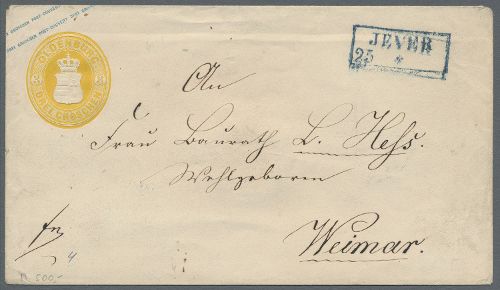 POST COUVERT
OLDENBURG
DREI GROSCHEN
JEVER
25 *
An
Frau Baurath L. Hess.
Wohlgeboren
Weimar.
fr
4
500,-